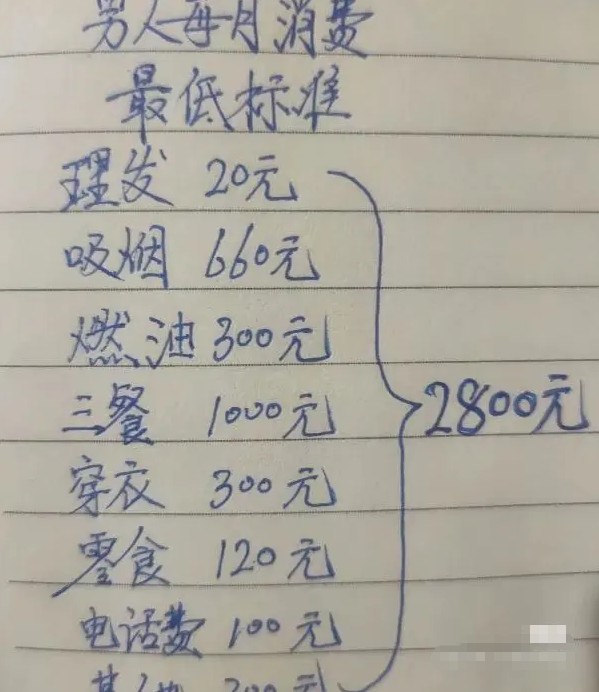 男人每月消费
最低标准
理发 20元
吸烟 660元
燃油 300元
三餐 1000元
穿衣 300元
零食 120元
电话费 100元
其他 300元
2800元